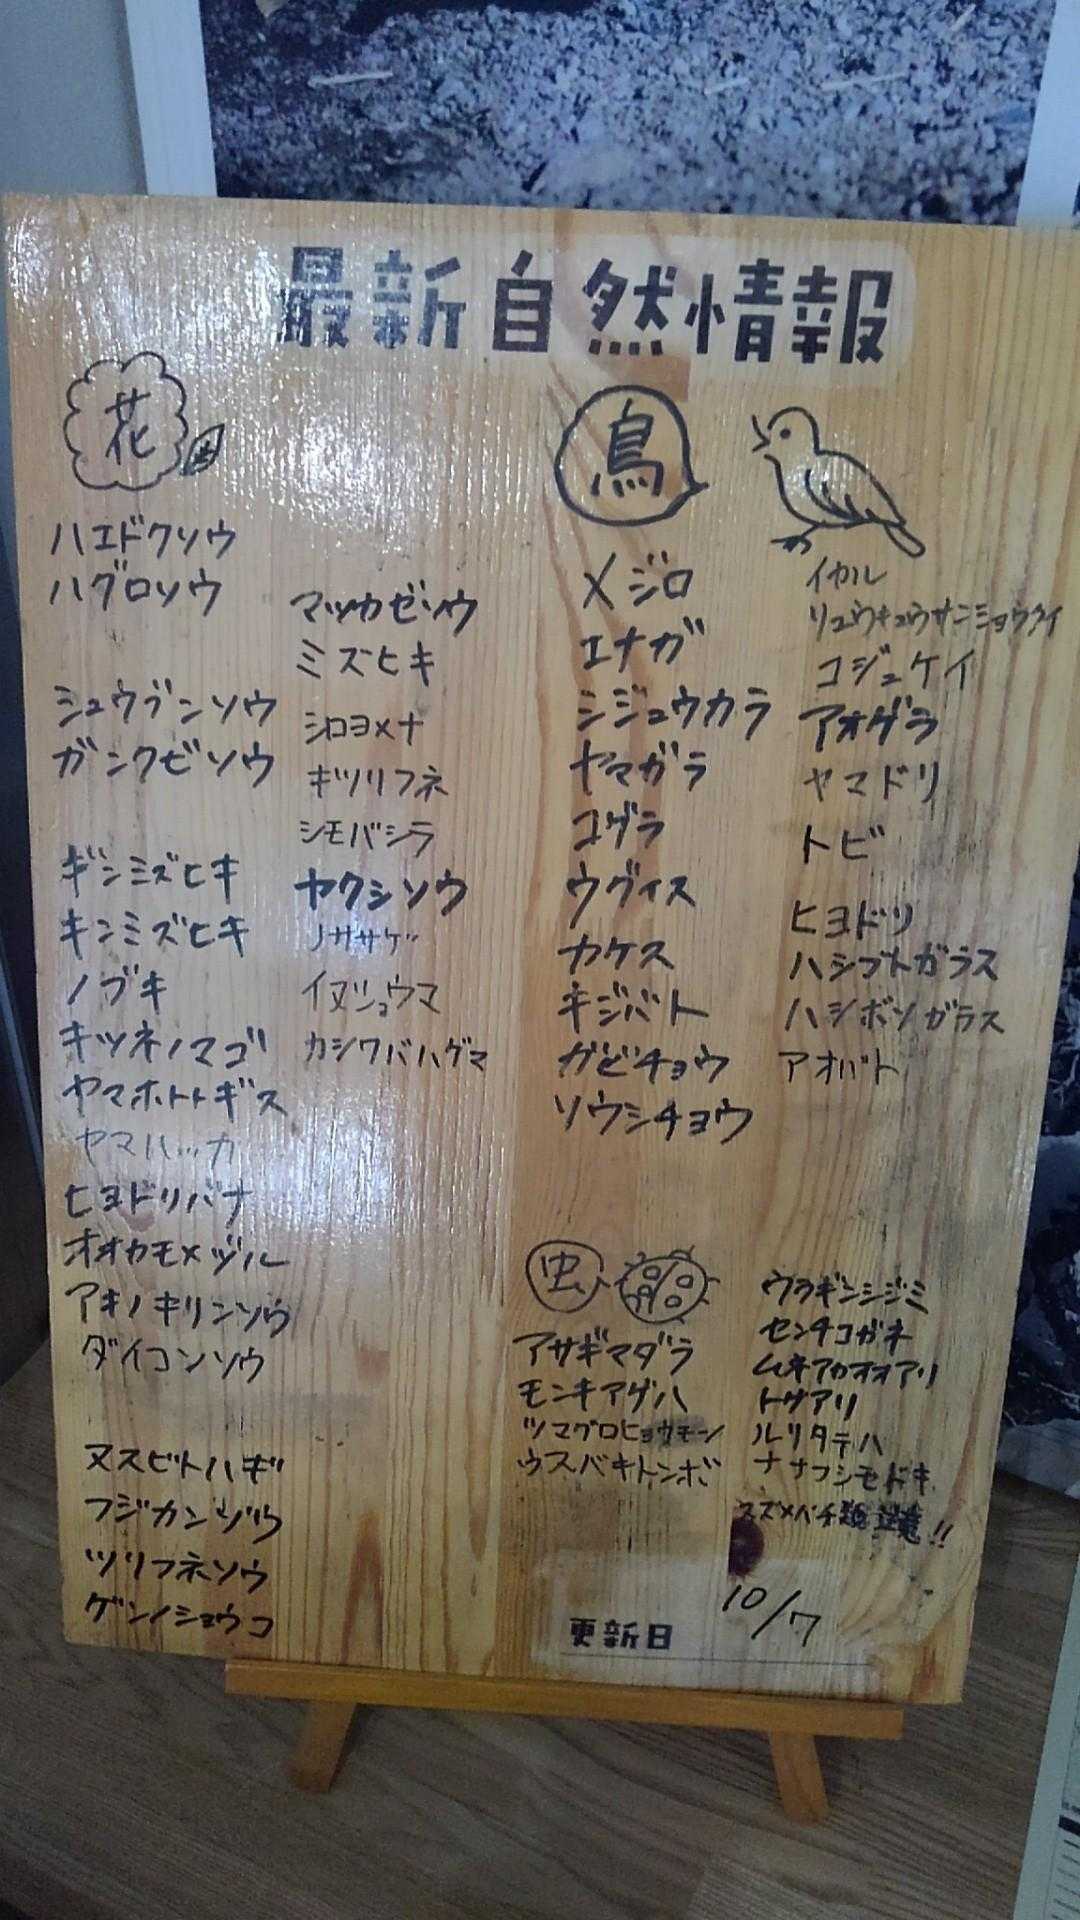 最新自然情報
花
ハエドクソウ
ハグロソウ
シュウブンソウ
ガンクビソウ
ギンミズヒキ
キンミズヒキ
ノブキ
キツネノマゴ
ヤマホトトギス
ヤマハッカ
ヒヨドリバナ
オオカモメヅル
アキノキリンソウ
ダイコンソウ
ヌスビトハギ
フジカンゾウ
ツリフネソウ
ゲンノショウコ
マツカゼソウ
ミズヒキ
シロヨメナ
キツリフネ
シモバシラ
ヤクシソウ
ノササゲ
イヌショウマ
カシワバハグマ
鳥
メジロ
エナガ
シジュウカラ
ヤマガラ
コゲラ
ウグイス
カケス
キジバト
ガビチョウ
ソウシチョウ
イカル
リュウキュウサンショウクイ
コジュケイ
アオゲラ
ヤマドリ
トビ
ヒヨドリ
ハシブトガラス
ハシボソガラス
アオバト
虫
アサギマダラ
モンキアゲハ
ツマグロヒョウモン
ウスバキトンボ
ウラギンシジミ
センチコガネ
ムネアカオオアリ
トゲアリ
ルリタテハ
ナナフシモドキ
スズメバチ類 注意!!
更新日 10/7